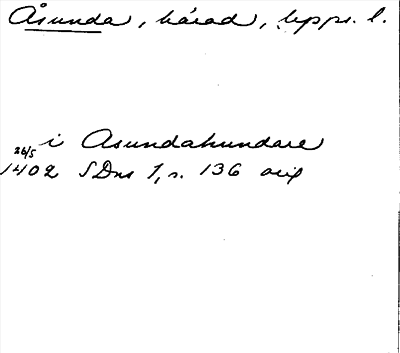 Åsunda, härad, Upps. l.
i Asundahundare
26/5
1402 SDns 1, s. 136 orig